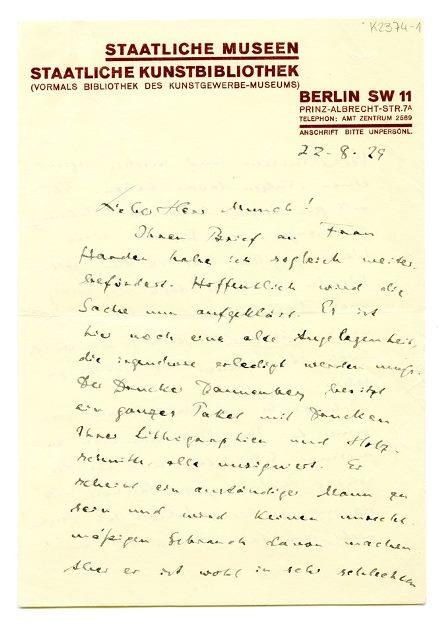 K2374-1
STAATLICHE MUSEEN
STAATLICHE KUNSTBIBLIOTHEK
(VORMALS BIBLIOTHEK DES KUNSTGEWERBE-MUSEUMS)
BERLIN SW 11
PRINZ-ALBRECHT-STR. 7A
TELEPHON: AMT ZENTRUM 2569
ANSCHRIFT BITTE UNPERSÖNL.
22-8-29
Lieber Herr Munch!
Ihren Brief an Frau
Harden habe ich sogleich weiter
befördert. Hoffentlich wird die
Sache nun aufgeklärt. Es ist
hier noch eine alte Angelegenheit,
die irgendwie erledigt werden muß.
Der Drucker Dannenberg besitzt
ein ganzes Paket mit Drucken
Ihrer Lithographien und Holz-
schnitte, alle unsigniert. Er
scheint ein anständiger Mann zu
sein und wird keinen unrecht-
mäßigen Gebrauch davon machen
Aber er ist wohl in sehr schlechten